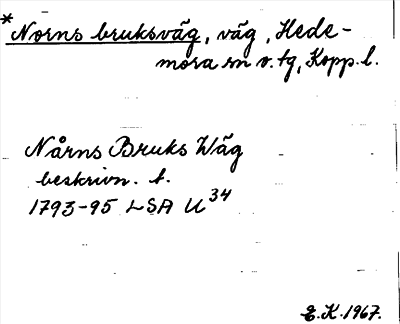 *Norns bruksväg, väg, Hede-
mora sn o. tg, Kopp. l.
Nårns Bruks Wäg
beskrivn. t.
1793-95 LSA U34
E.K. 1967.